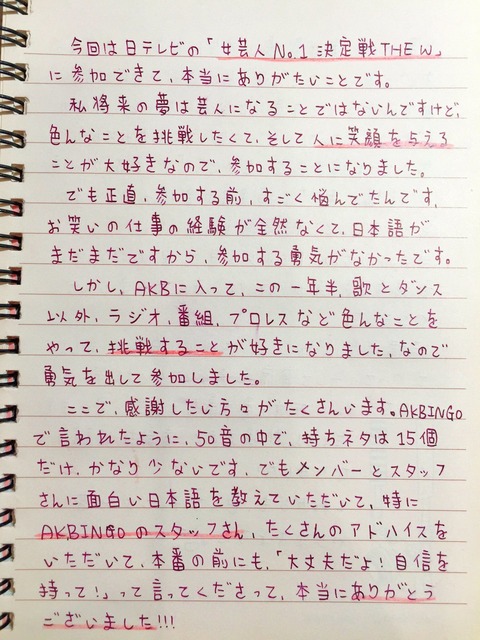 今回は日テレビの「女芸人No.1 決定戦THE W」
に参加できて、本当にありがたいことです。
私将来の夢は芸人になることではないんですけど、
色んなことを挑戦したくて、そして人に笑顔を与える
ことが大好きなので、参加することになりました。
でも正直、参加する前、すごく悩んでたんです、
お笑いの仕事の経験が全然なくて、日本語が
まだまだですから、参加する勇気がなかったです。
しかし、AKBに入って、この一年半、歌とダンス
以外、ラジオ、番組、プロレスなど色んなことを
やって、挑戦することが好きになりました、なので
勇気を出して参加しました。
ここで、感謝したい方々がたくさんいます。AKBINGO
で言われたように、50音の中で、持ちネタは15個
だけ、かなり少ないです、でもメンバーとスタッフ
さんに面白い日本語を教えていただいて、特に
AKBINGOのスタッフさん、たくさんのアドバイスを
いただいて、本番の前にも、「大丈夫だよ!自信を
持って!」って言ってくださって、本当にありがとう
ございました!!!